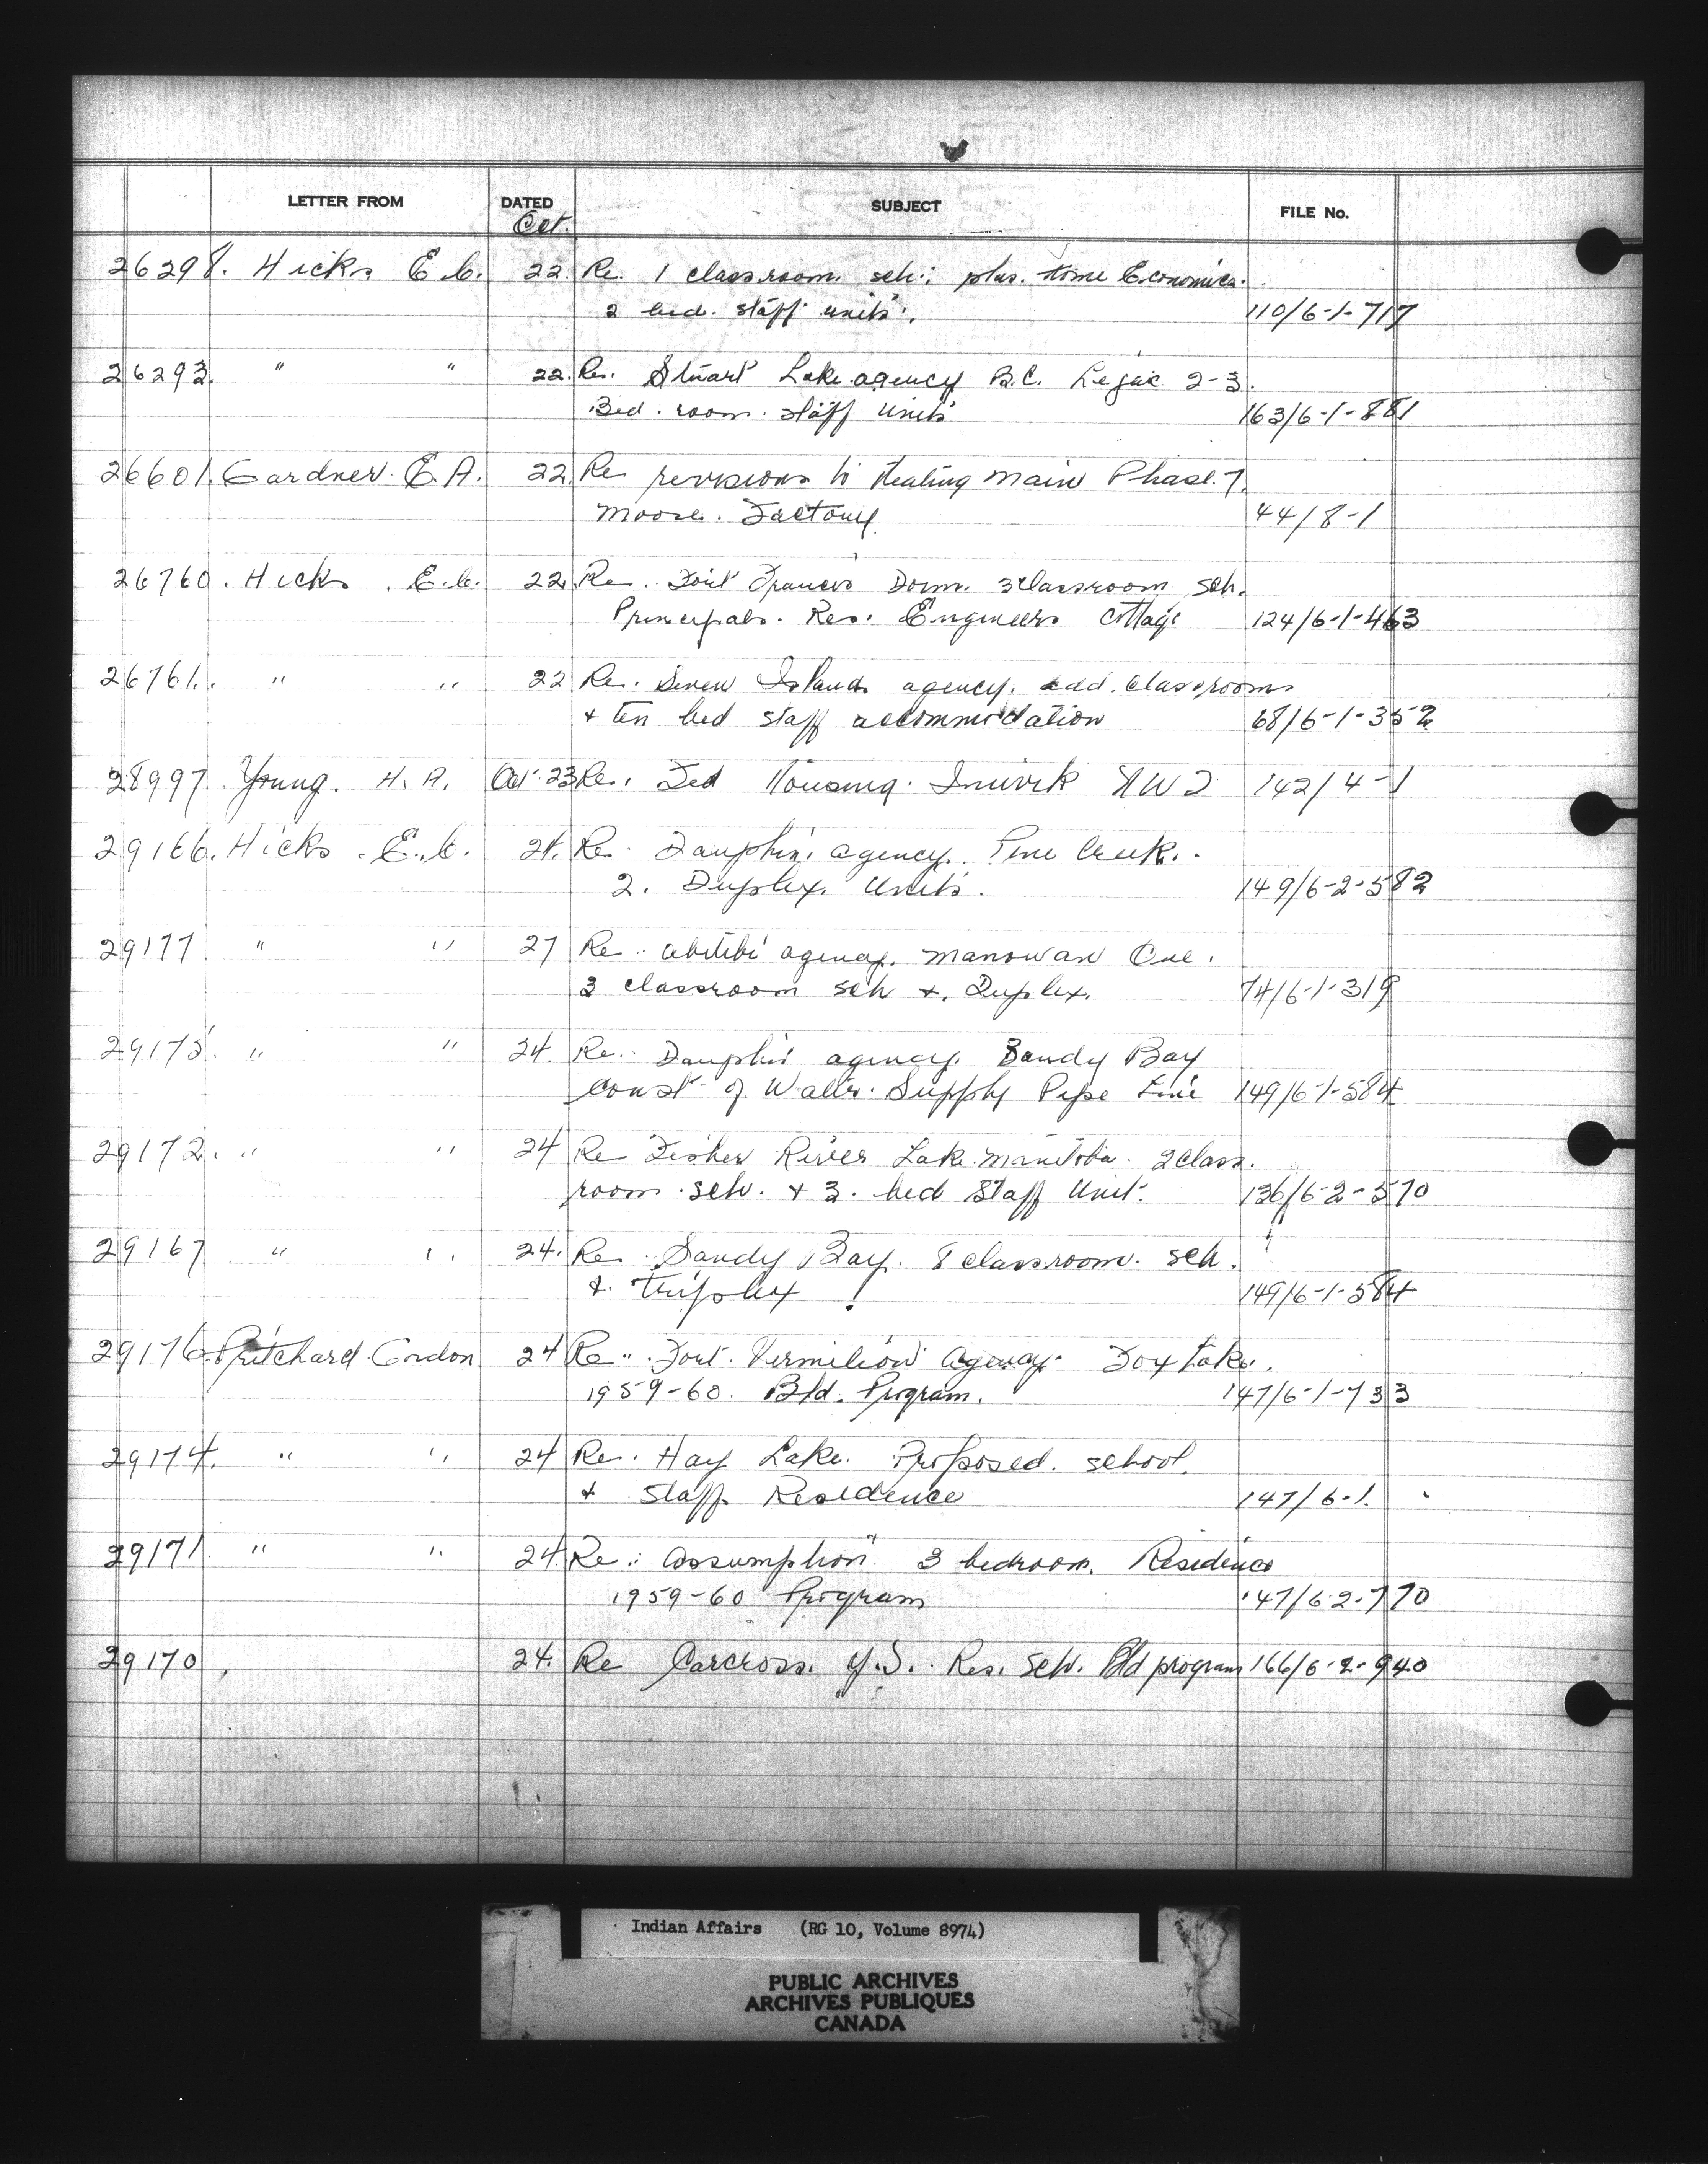 LETTER FROM DATED SUBJECT FILE No.
Oct.
26298. Hicks E.C. 22. Re. 1 classroom. sch. plus. Home Economics.
2 bed. staff units. 110/6-1-717
26293. " " 22. Re. Stuart Lake agency B.C. Lejac 2-3.
Bed. room. staff units 163/6-1-881
26601. Gardner. E.A. 22. Re revisions to Heating Main Phase 7.
Moose. Factory 44/8-1
26760. Hicks. E.C. 22. Re. Fort Frances Dorm. 3 classroom sch.
Principals. Res. Engineers Cottage 124/6-1-463
26761. " " 22 Re. Seven Islands agency. add. classrooms
+ ten bed staff accommodation 68/6-1-352
28997 Young. H.A. Oct. 23 Re. Fed Housing. Inuvik NWT 142/4-1
29166. Hicks. E.C. 24. Re. Dauphin agency. Pine Creek.
2. Duplex. Units. 149/6-2-582
29177 " " 27 Re. abitibi agency. Manowan Que.
3 classroom sch +. Duplex. 74/6-1-319
29175. " " 24. Re. Dauphin agency. Sandy Bay
Const. of Water. Supply Pipe Line 149/6-1-584
29172. " " 24 Re Fisher River Lake. Manitoba. 2 class.
room. sch. + 3. bed Staff Unit. 136/6-2-570
29167 " " 24. Re. Sandy Bay. 8 classroom. sch.
+. Triplex 149/6-1-584
29176. Pritchard Gordon 24 Re. Fort. Vermilion Agency. Fox Lake.
1959-60. Bld. Program. 147/6-1-733
29174. " " 24 Re. Hay Lake. Proposed. school.
+ Staff. Residence 147/6-1.
29171. " " 24 Re. assumption 3 bedroom. Residence
1959-60 Program 147/6-2-770
29170 24. Re Carcross. Y.T. Res. Sch. Bld program 166/6-2-940
Indian Affairs (RG 10, Volume 8974)
PUBLIC ARCHIVES
ARCHIVES PUBLIQUES
CANADA